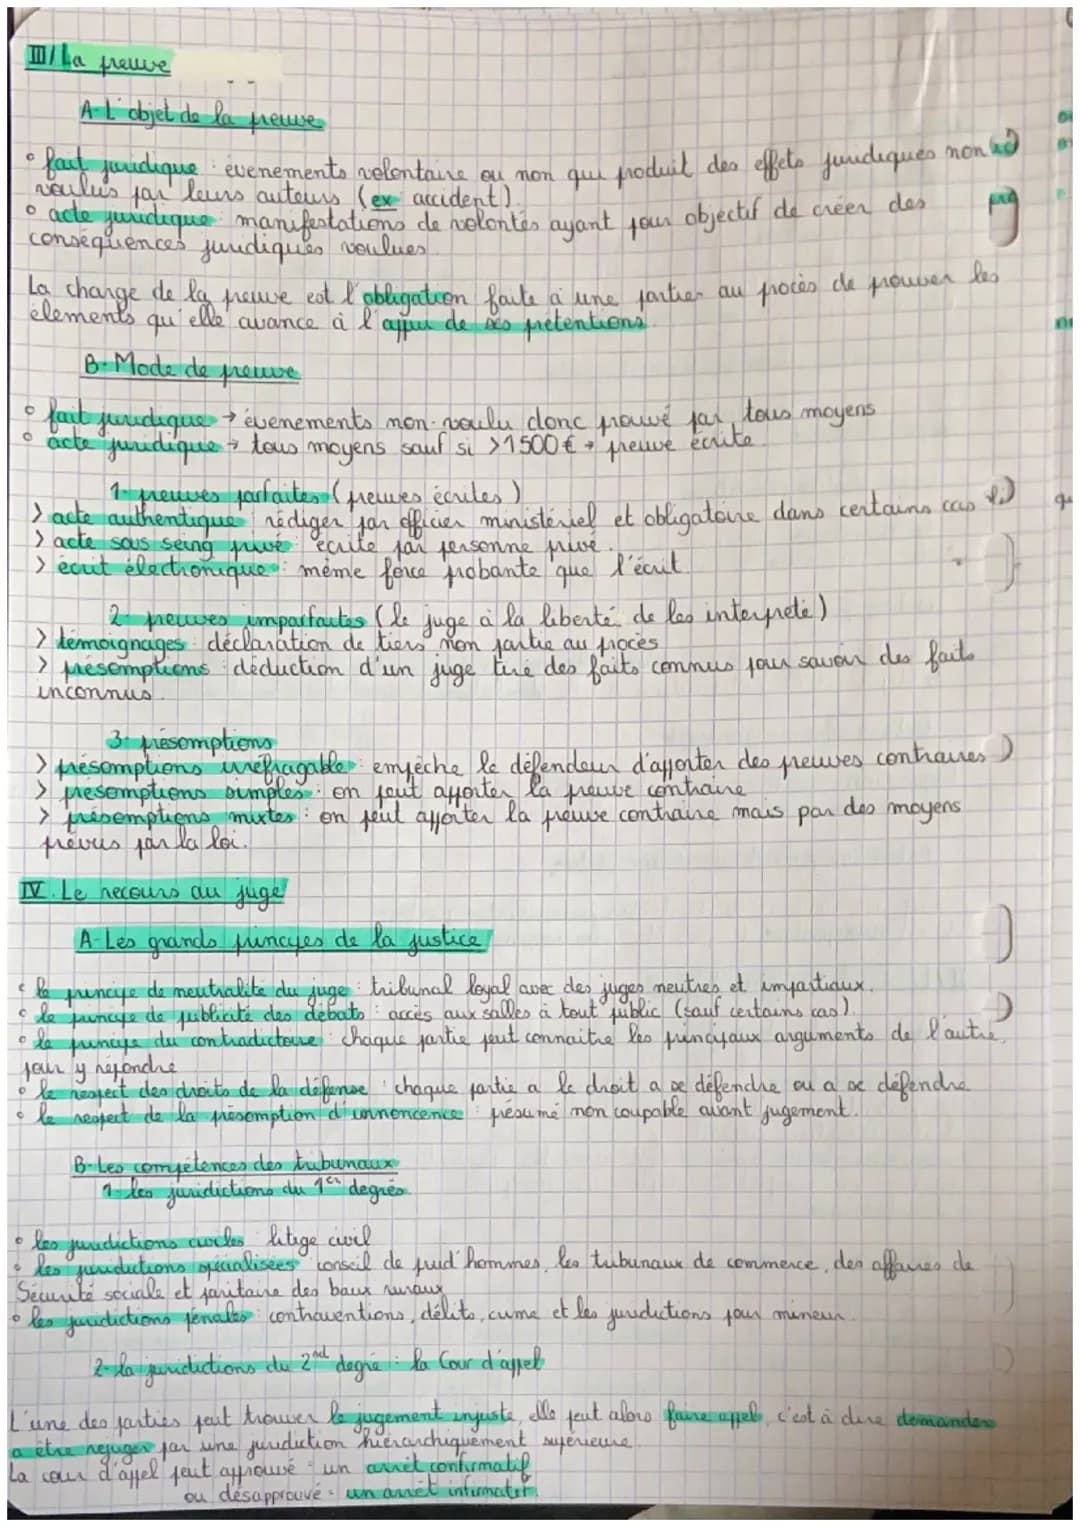 III/ La preuve
A- L'objet de la preuve
° fait juridique : évenements volontaire ou non qui produit des effets juridiques non
voulus par leurs auteurs (ex : accident).
° acte juridique : manifestations de volontés ayant pour objectif de créer des
conséquences juridiques voulues.
La charge de la preuve est l'obligation faite à une parties au procès de prouver les
élements qu'elle avance à l'appui de ses prétentions.
B- Mode de preuve
° fait juridique → évenements non-voulu donc prouvé par tous moyens
° acte juridique → tous moyens sauf si >1500€ → preuve écrite.
1- preuves parfaites (preuves écrites)
> acte authentique : rédiger par officier ministériel et obligatoire dans certains cas
> acte sous seing privé : écrite par personne privé.
> écrit électronique : même force probante que l'écrit.
2- preuves imparfaites (le juge à la liberté de les interpreté)
> témoignages : déclaration de tiers non partie au procès
> présomptions : déduction d'un juge tiré des faits connus pour savoir des faits
inconnus.
3- présomptions
> présomptions irréfragable : empêche le défendeur d'apporter des preuves contraires
> présomptions simples : on peut apporter la preuve contraire
> présomptions mixtes : on peut apporter la preuve contraire mais par des moyens
prévus par la loi.
IV. Le recours au juge
A- Les grands principes de la justice
° le principe de neutralité du juge : tribunal loyal avec des juges neutres et impartiaux.
° le principe de publicité des débats : accès aux salles à tout public (sauf certains cas).
° le principe du contradictoire : chaque partie peut connaitre les principaux arguments de l'autre
pour y répondre
° le respect des droits de la défense : chaque partie a le droit a se défendre ou a se défendre
° le respect de la présomption d'innoncence : présumé non coupable avant jugement.
B- Les compétences des tribunaux
1- les juridictions du 1er degrés
° les juridictions civiles : litige civil
° les juridictions spécialisées : conseil de prud'hommes, les tribunaux de commerce, des affaires de
Sécurité sociale et paritaire des baux ruraux
° les juridictions pénales : contraventions, délits, crime et les juridictions pour mineur.
2- la juridictions du 2nd degré : la Cour d'appel
L'une des parties peut trouver le jugement injuste, elle peut alors faire appel, c'est à dire demander
a être rejuger par une juridiction hiérarchiquement supérieure.
La cour d'appel peut approuvé : un arrêt confirmatif
ou désapprouvé : un arrêt infirmatif.